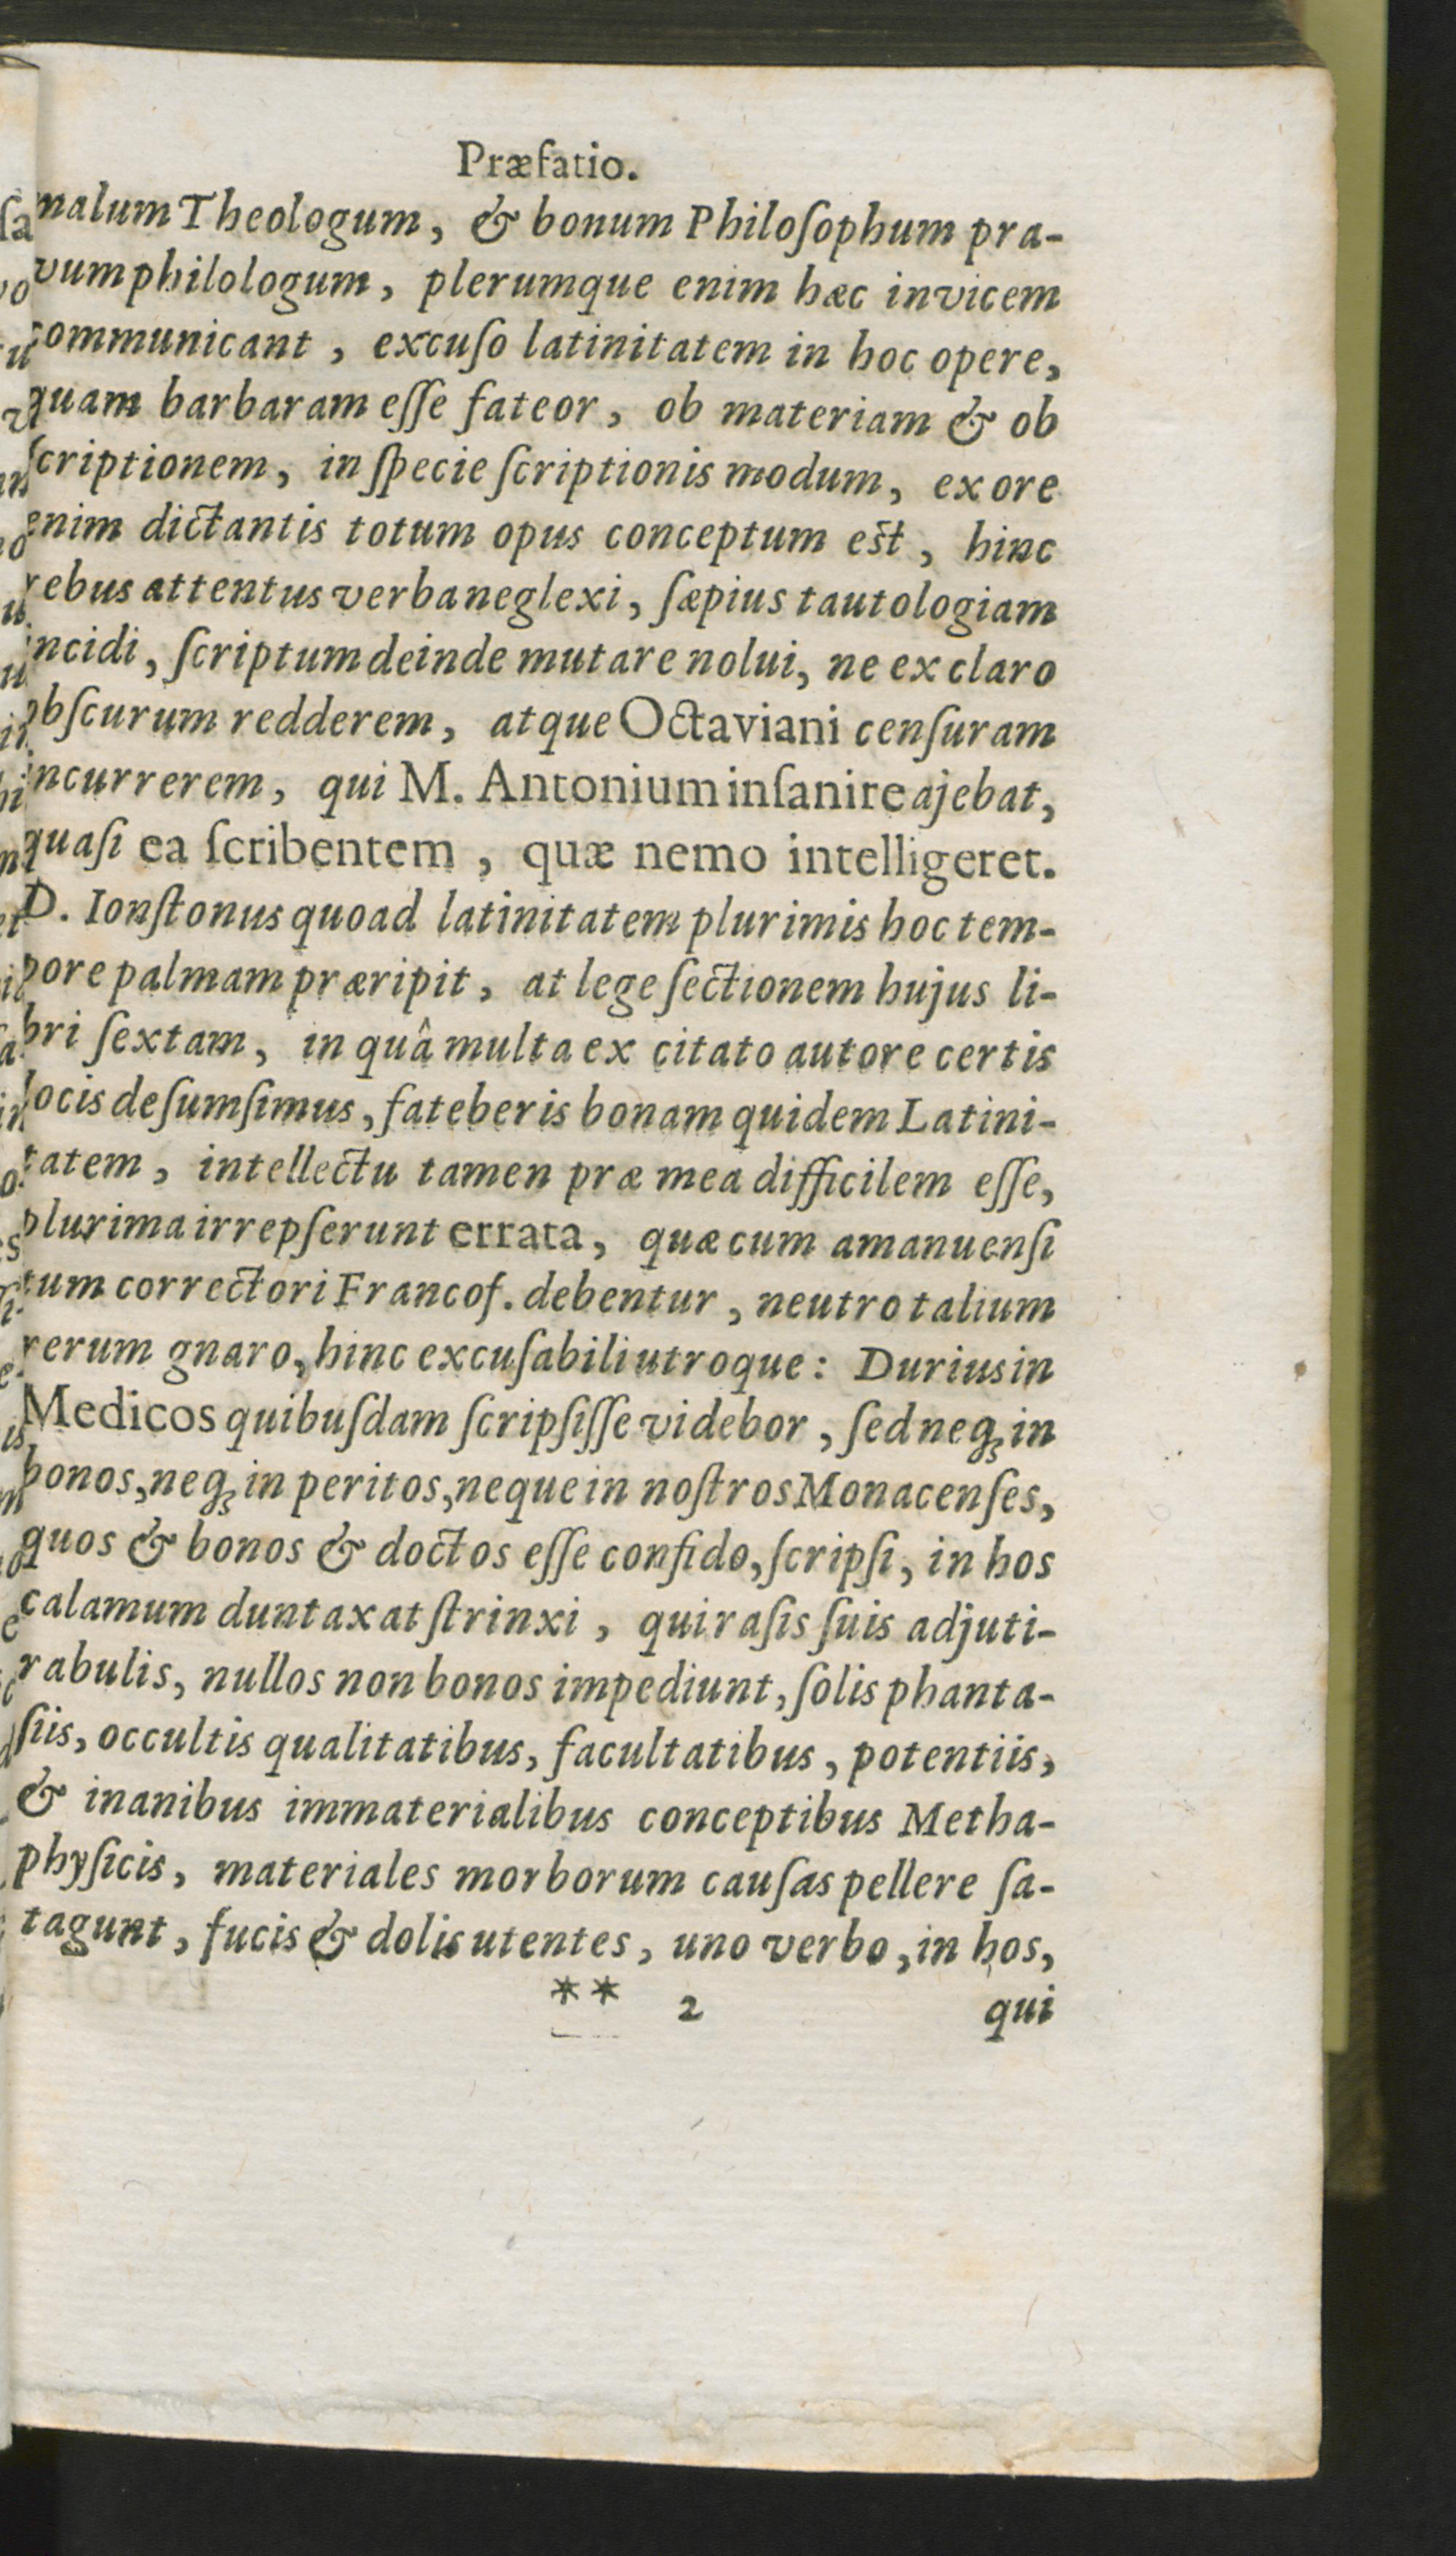 Præfatio.
malum Theologum, & bonum Philoſophum pra-
vum philologum, plerumque enim hæc invicem
communicant, excuſo latinitatem in hoc opere,
quam barbaram eſſe fateor, ob materiam & ob
ſcriptionem, in ſpecie ſcriptionis modum, ex ore
enim dictantis totum opus conceptum eſt, hinc
rebus attentus verba neglexi, ſæpius tautologiam
incidi, ſcriptum deinde mutare nolui, ne ex claro
obſcurum redderem, atque Octaviani cenſuram
incurrerem, qui M. Antonium inſanire ajebat,
quaſi ea ſcribentem, quæ nemo intelligeret.
D. Ionſtonus quoad latinitatem plurimis hoc tem-
pore palmam præripit, at lege ſectionem hujus li-
bri ſextam, in quâ multa ex citato autore certis
locis deſumſimus, fateberis bonam quidem Latini-
tatem, intellectu tamen præ mea difficilem eſſe,
plurima irrepſerunt errata, quæ cum amanuenſi
tum correctori Francof. debentur, neutro talium
rerum gnaro, hinc excuſabili utroque: Durius in
Medicos quibuſdam ſcripſiſſe videbor, ſed neq; in
bonos, neq; in peritos, neque in noſtros Monacenſes,
quos & bonos & doctos eſſe confido, ſcripſi, in hos
calamum duntaxat ſtrinxi, qui raſis ſuis adjuti-
rabulis, nullos non bonos impediunt, ſolis phanta-
ſiis, occultis qualitatibus, facultatibus, potentiis,
& inanibus immaterialibus conceptibus Metha-
phyſicis, materiales morborum cauſas pellere ſa-
tagunt, fucis & dolis utentes, uno verbo, in hos,
** 2 qui